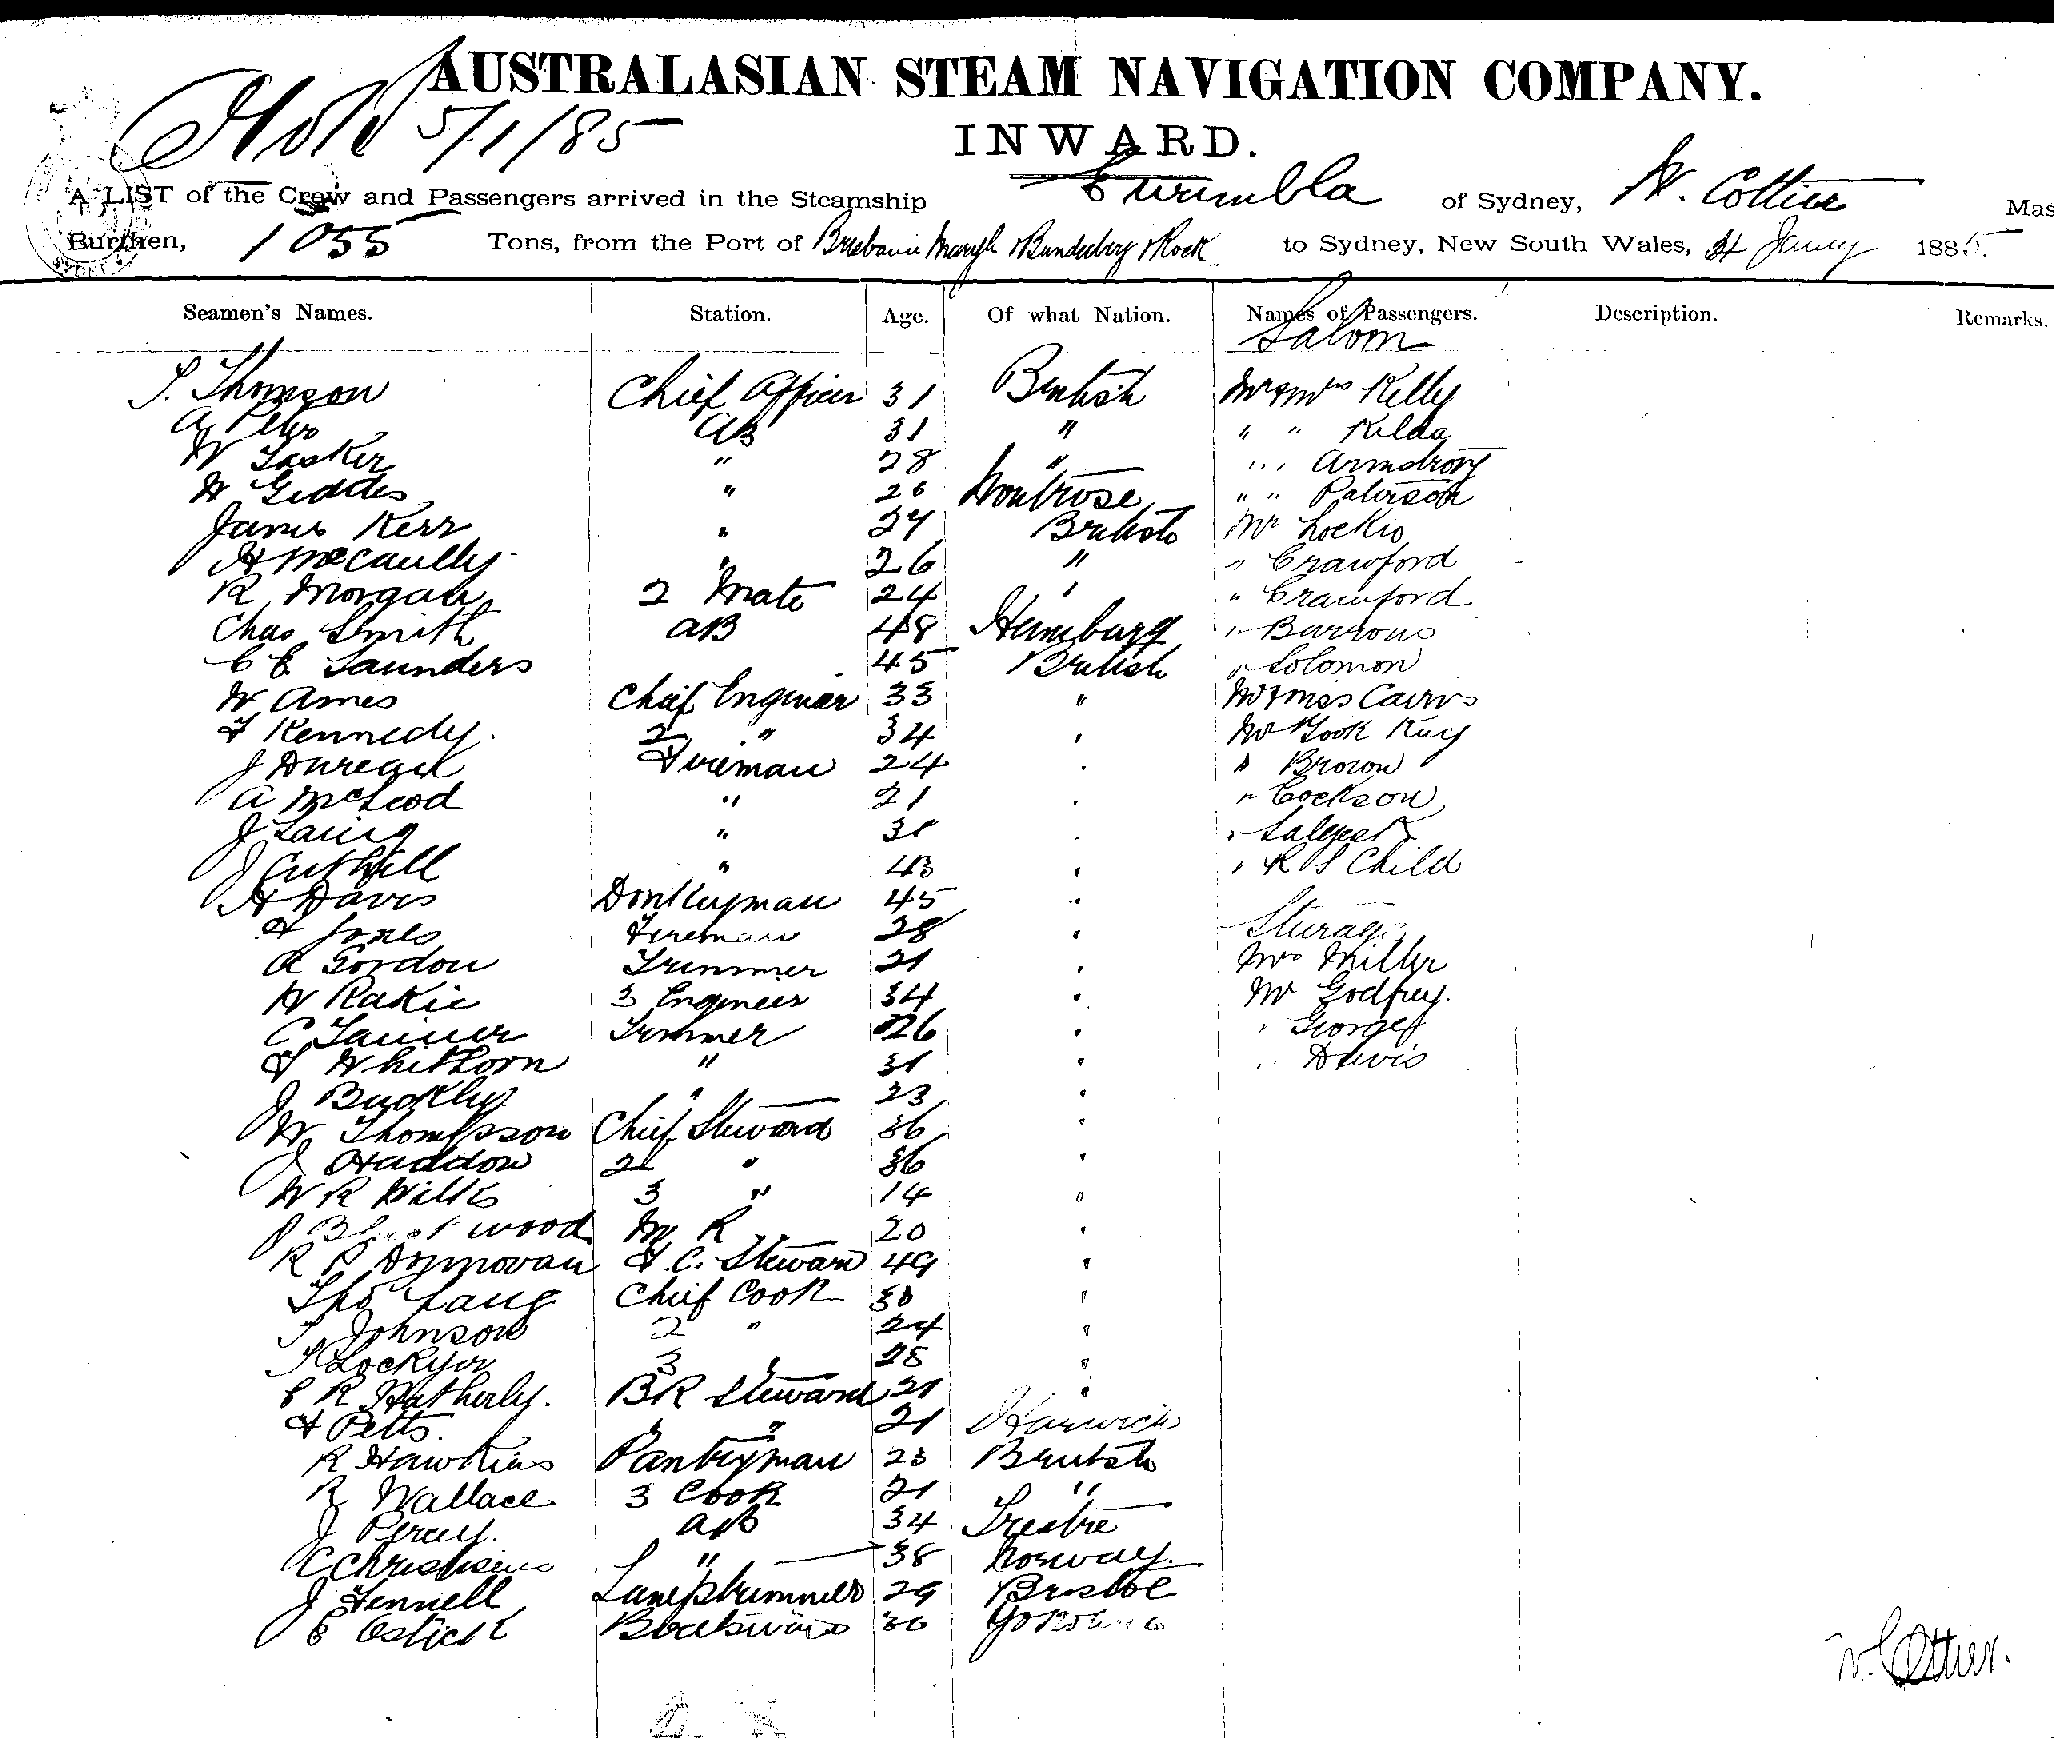 AUSTRALASIAN STEAM NAVIGATION COMPANY.
5/1/85
INWARD.
A LIST of the Crew and Passengers arrived in the Steamship Gurimbla of Sydney, W. Cottier Mas
Burthen, 1055 Tons, from the Port of Brisbane Maryb &Bundaberg &Rock to Sydney, New South Wales, 4 Jany 1885.
Seamen's Names. Station. Age. Of what Nation. Names of Passengers. Description. Remarks.
Saloon
S. Thomson Chief Officer 31 British Mr & Mrs Kelly
A Peter AB 31 " " " Kilda
W Tasker " 28 " " " Armstrong
W Geddes " 26 Montrose " " Paterson
James Kerr " 27 British Mr Lockie
H McCaully " 26 " " Crawford
R Morgan 2 Mate 24 " " Crawford
Chas Smith AB 48 Hamburg " Barrons
C E Saunders 45 British " Solomon
W Ames Chief Engineer 33 " Mr & Miss Cairns
T Kennedy. 2 " 34 " Mr Gook Kuy
J Fireman 24 " " Brown
A McLeod " 21 " " Cockson
J Laing " 31 " "
J Cuthill " 43 " " R S Child
H Davis Donkeyman 45 "
H Jones Fireman 28 " Sturage
A Gordon Trimmer 21 " Mrs Miller
W Rakie 3 Engineer 34 " Mr Godfrey.
C Tanner Trimmer 26 " " George
T Whithorn " 31 " " Davis
J Buckley " 23 "
W Thompson Chief Steward 36 "
J Haddow 2 " 36 "
W R Wilks 3 " 14 "
wood M R 20 "
R P Donnovan F. C. Steward 49 "
Tho Lang Chief Cook 30 "
T Johnson 2 " 24 "
Lockyer 3 " 28 "
E R Hatherly. BR Steward 21 "
H Petts. " " 21 Harwich
R Hawkins Pantryman 23 British
R Wallace 3 Cook 21 "
J Percy. AB 34 Trestre
C Christsens " 38 Norway
J Fennell Lamptrimmer 29 Bristol
E Boatswain 30
W. Cottier.